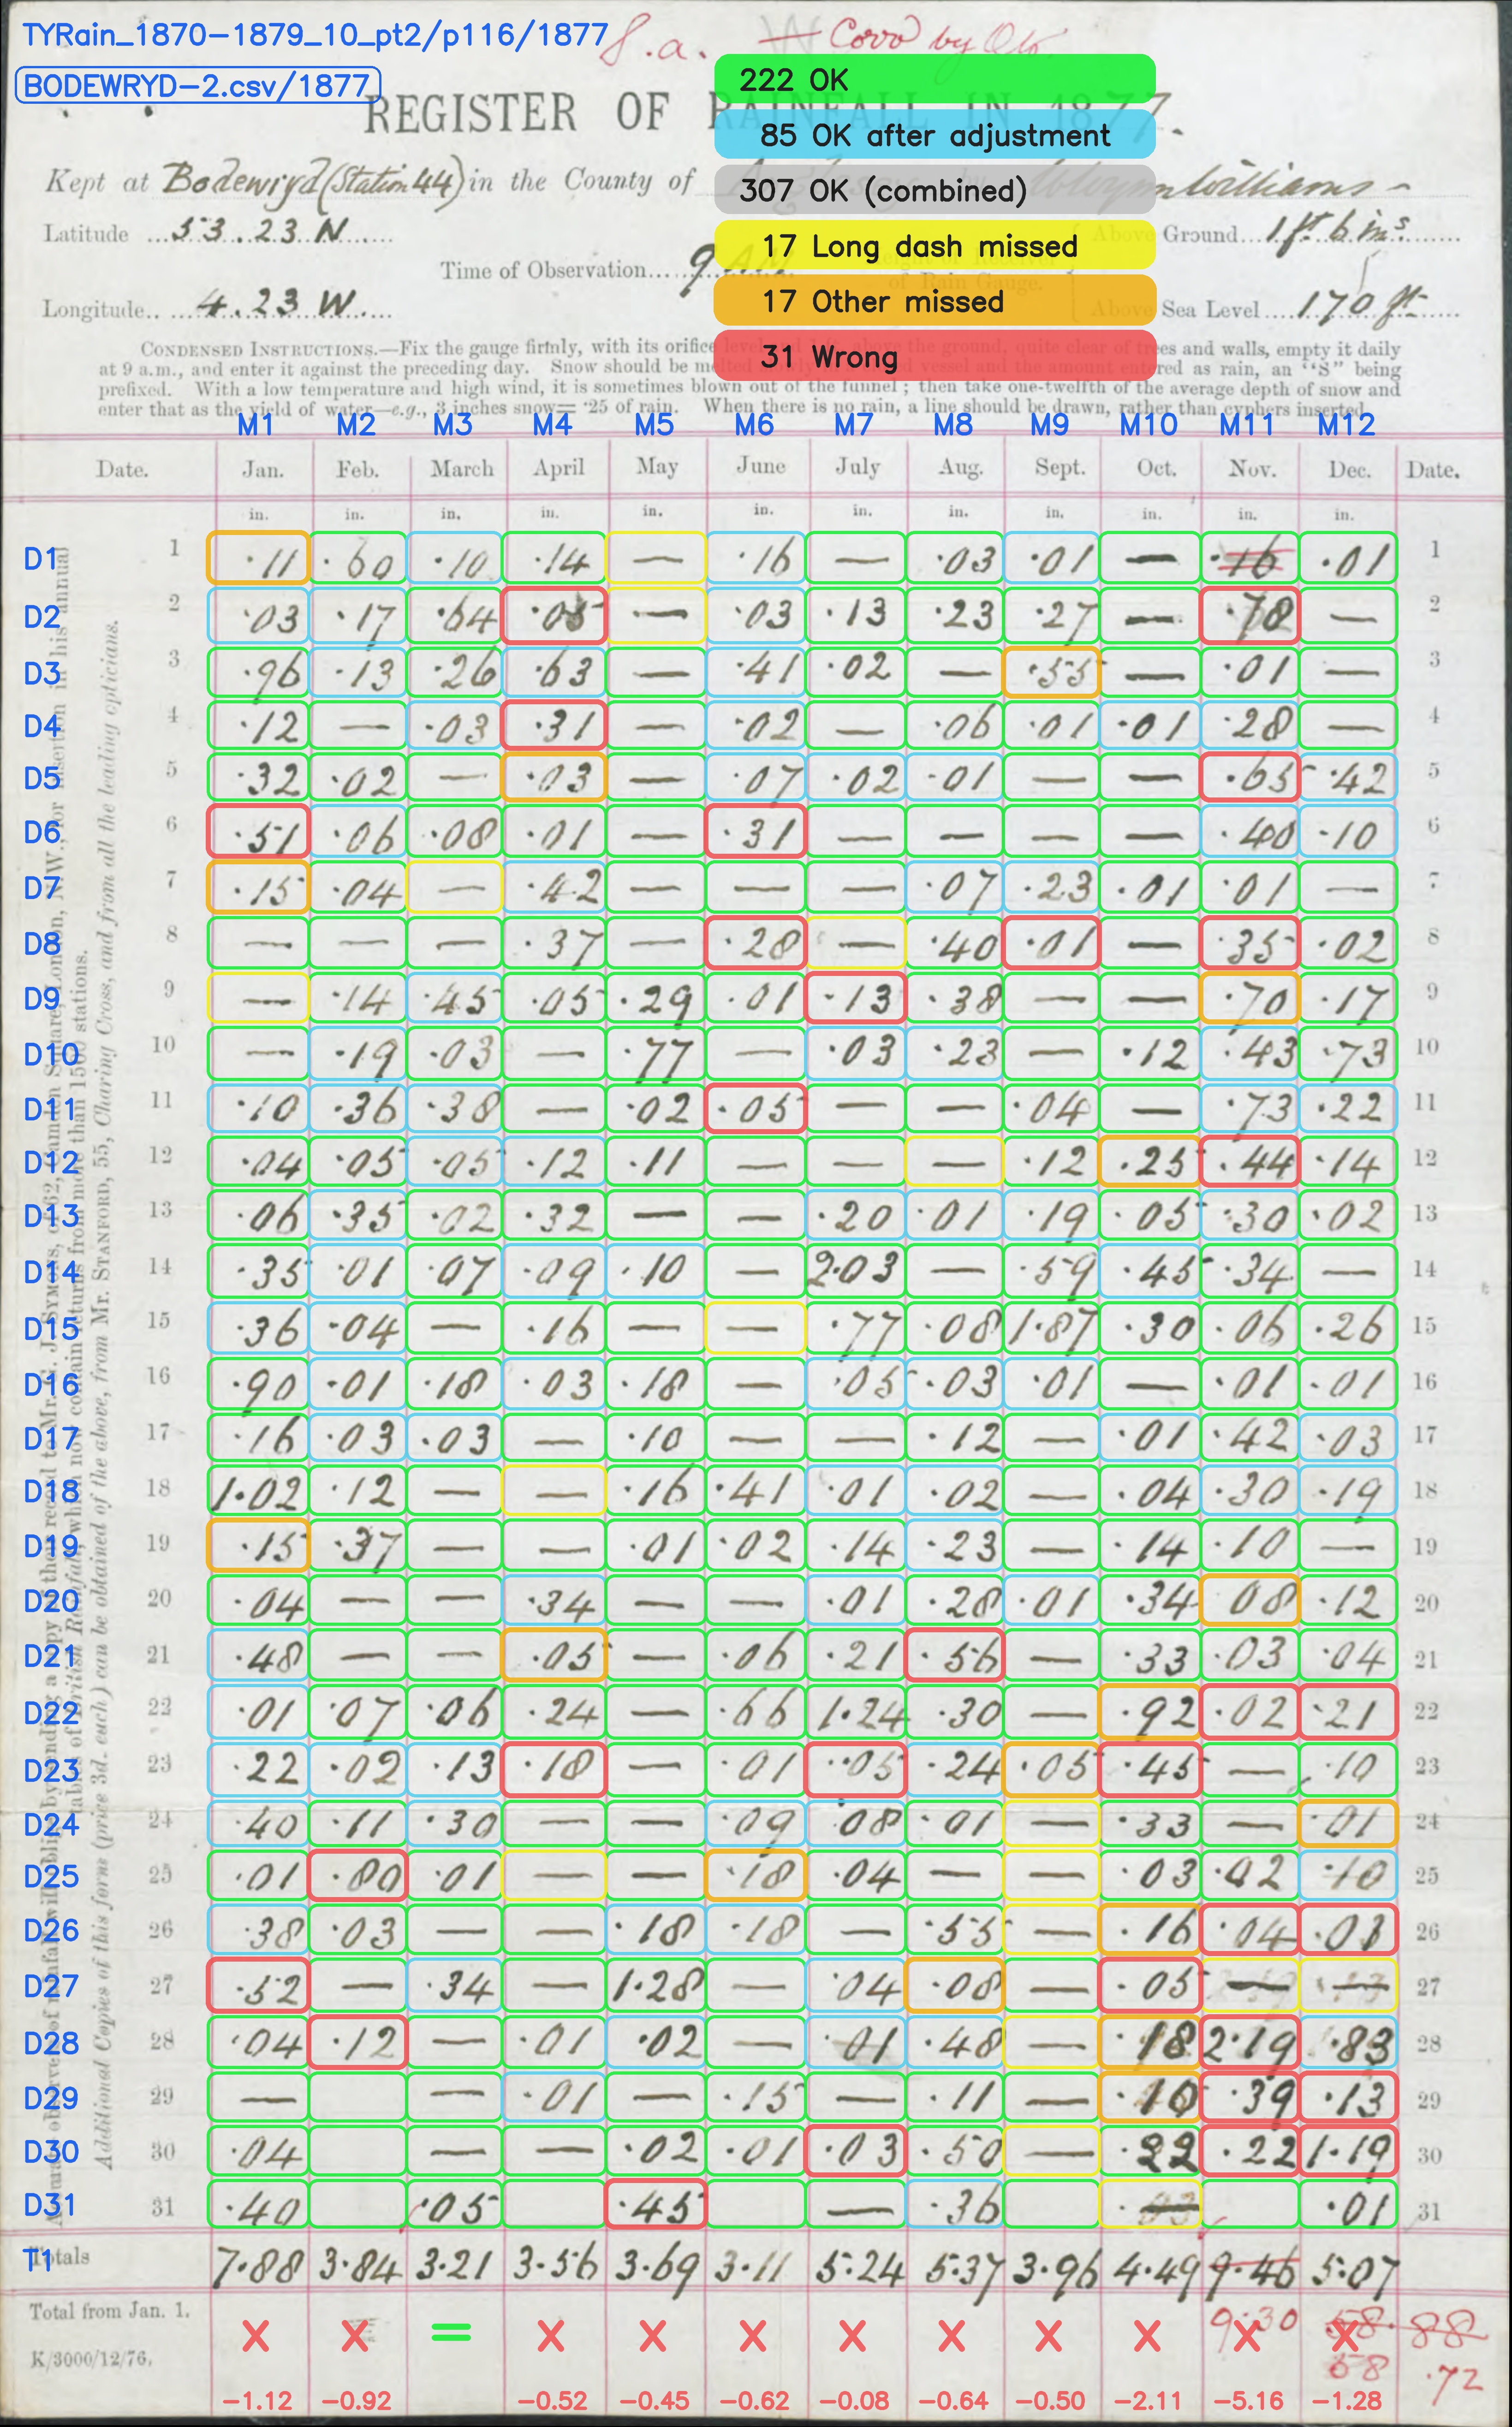 TYRain_1870-1879_10_pt2/p116/1877
S.a. Covd by Oto.
BODEWRYD-2.csv/1877
222 OK
85 OK after adjustment
307 OK (combined)
17 Long dash missed
17 Other missed
31 Wrong
REGISTER OF RAINFALL IN 1877.
Kept at Bodewryd (Station 44) in the County of Williams
Latitude 53.23 N.
Above Ground 1 ft 6 ins
Time of Observation 9 AM
of Rain Gauge.
Longitude 4.23 W.
Above Sea Level 170 ft
CONDENSED INSTRUCTIONS.—Fix the gauge firmly, with its orifice level above the ground, quite clear of trees and walls, empty it daily
at 9 a.m., and enter it against the preceding day. Snow should be melted vessel and the amount entered as rain, an "S" being
prefixed. With a low temperature and high wind, it is sometimes blown out of the funnel; then take one-twelfth of the average depth of snow and
enter that as the yield of water—e.g., 3 inches snow= ·25 of rain. When there is no rain, a line should be drawn, rather than cyphers inserted
M1 M2 M3 M4 M5 M6 M7 M8 M9 M10 M11 M12
Date. Jan. Feb. March April May June July Aug. Sept. Oct. Nov. Dec. Date.
in. in. in. in. in. in. in. in. in. in. in. in.
D1 1 ·11 ·60 ·10 ·14 — ·16 — ·03 ·01 — ·16 ·01 1
D2 2 ·03 ·17 ·64 ·05 — ·03 ·13 ·23 ·27 — ·78 — 2
D3 3 ·96 ·13 ·26 ·63 — ·41 ·02 — ·55 — ·01 — 3
D4 4 ·12 — ·03 ·31 — ·02 — ·06 ·01 ·01 ·28 — 4
D5 5 ·32 ·02 — ·03 — ·07 ·02 ·01 — — ·65 ·42 5
D6 6 ·51 ·06 ·08 ·01 — ·31 — — — — ·40 ·10 6
D7 7 ·15 ·04 — ·42 — — — ·07 ·23 ·01 ·01 — 7
D8 8 — — — ·37 — ·28 — ·40 ·01 — ·35 ·02 8
D9 9 — ·14 ·45 ·05 ·29 ·01 ·13 ·38 — — ·70 ·17 9
D10 10 — ·19 ·03 — ·77 — ·03 ·23 — ·12 ·43 ·73 10
D11 11 ·10 ·36 ·38 — ·02 ·05 — — ·04 — ·73 ·22 11
D12 12 ·04 ·05 ·05 ·12 ·11 — — — ·12 ·25 ·44 ·14 12
D13 13 ·06 ·35 ·02 ·32 — — ·20 ·01 ·19 ·05 ·30 ·02 13
D14 14 ·35 ·01 ·07 ·09 ·10 — 2·03 — ·59 ·45 ·34 — 14
D15 15 ·36 ·04 — ·16 — — ·77 ·08 1·87 ·30 ·06 ·26 15
D16 16 ·90 ·01 ·18 ·03 ·18 — ·05 ·03 ·01 — ·01 ·01 16
D17 17 ·16 ·03 ·03 — ·10 — — ·12 — ·01 ·42 ·03 17
D18 18 1·02 ·12 — — ·16 ·41 ·01 ·02 — ·04 ·30 ·19 18
D19 19 ·15 ·37 — — ·01 ·02 ·14 ·23 — ·14 ·10 — 19
D20 20 ·04 — — ·34 — — ·01 ·28 ·01 ·34 ·08 ·12 20
D21 21 ·48 — — ·05 — ·06 ·21 ·56 — ·33 ·03 ·04 21
D22 22 ·01 ·07 ·06 ·24 — ·66 1·24 ·30 — ·92 ·02 ·21 22
D23 23 ·22 ·02 ·13 ·18 — ·01 ·05 ·24 ·05 ·45 — ·10 23
D24 24 ·40 ·11 ·30 — — ·09 ·08 ·01 — ·33 — ·01 24
D25 25 ·01 ·80 ·01 — — ·18 ·04 — — ·03 ·02 ·10 25
D26 26 ·38 ·03 — — ·18 ·18 — ·55 — ·16 ·04 ·01 26
D27 27 ·52 — ·34 — 1·28 — ·04 ·08 — ·05 — — 27
D28 28 ·04 ·12 — ·01 ·02 — ·01 ·48 — ·18 2·19 ·83 28
D29 29 — — ·01 — ·15 — ·11 — ·10 ·39 ·13 29
D30 30 ·04 — — ·02 ·01 ·03 ·50 — ·22 ·22 1·19 30
D31 31 ·40 ·05 ·45 — ·36 — ·01 31
T1 Totals 7·88 3·84 3·21 3·56 3·69 3·11 5·24 5·37 3·96 4·49 9·46 5·07
Total from Jan. 1. 9·30 58·88
K/3000/12/76. 58·72
-1.12 -0.92 -0.52 -0.45 -0.62 -0.08 -0.64 -0.50 -2.11 -5.16 -1.28
Additional Copies of this form (price 3d. each) can be obtained of the above, from Mr. STANFORD, 55, Charing Cross, and from all the leading opticians.